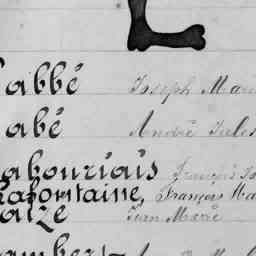 L
abbé Joseph Marie
abé André Jules
abouriais François Jo
Lafontaine, François Ma
aize Jean Marie
ambert